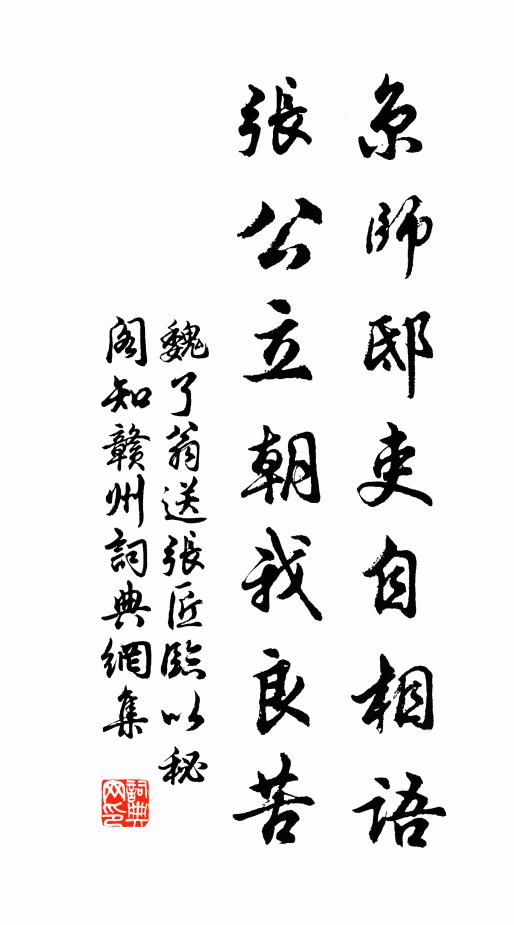 京師邸吏自相語
張公立朝我良苦
魏了翁送張匠臨以秘
阁知贛州詞典網集
詞典网印